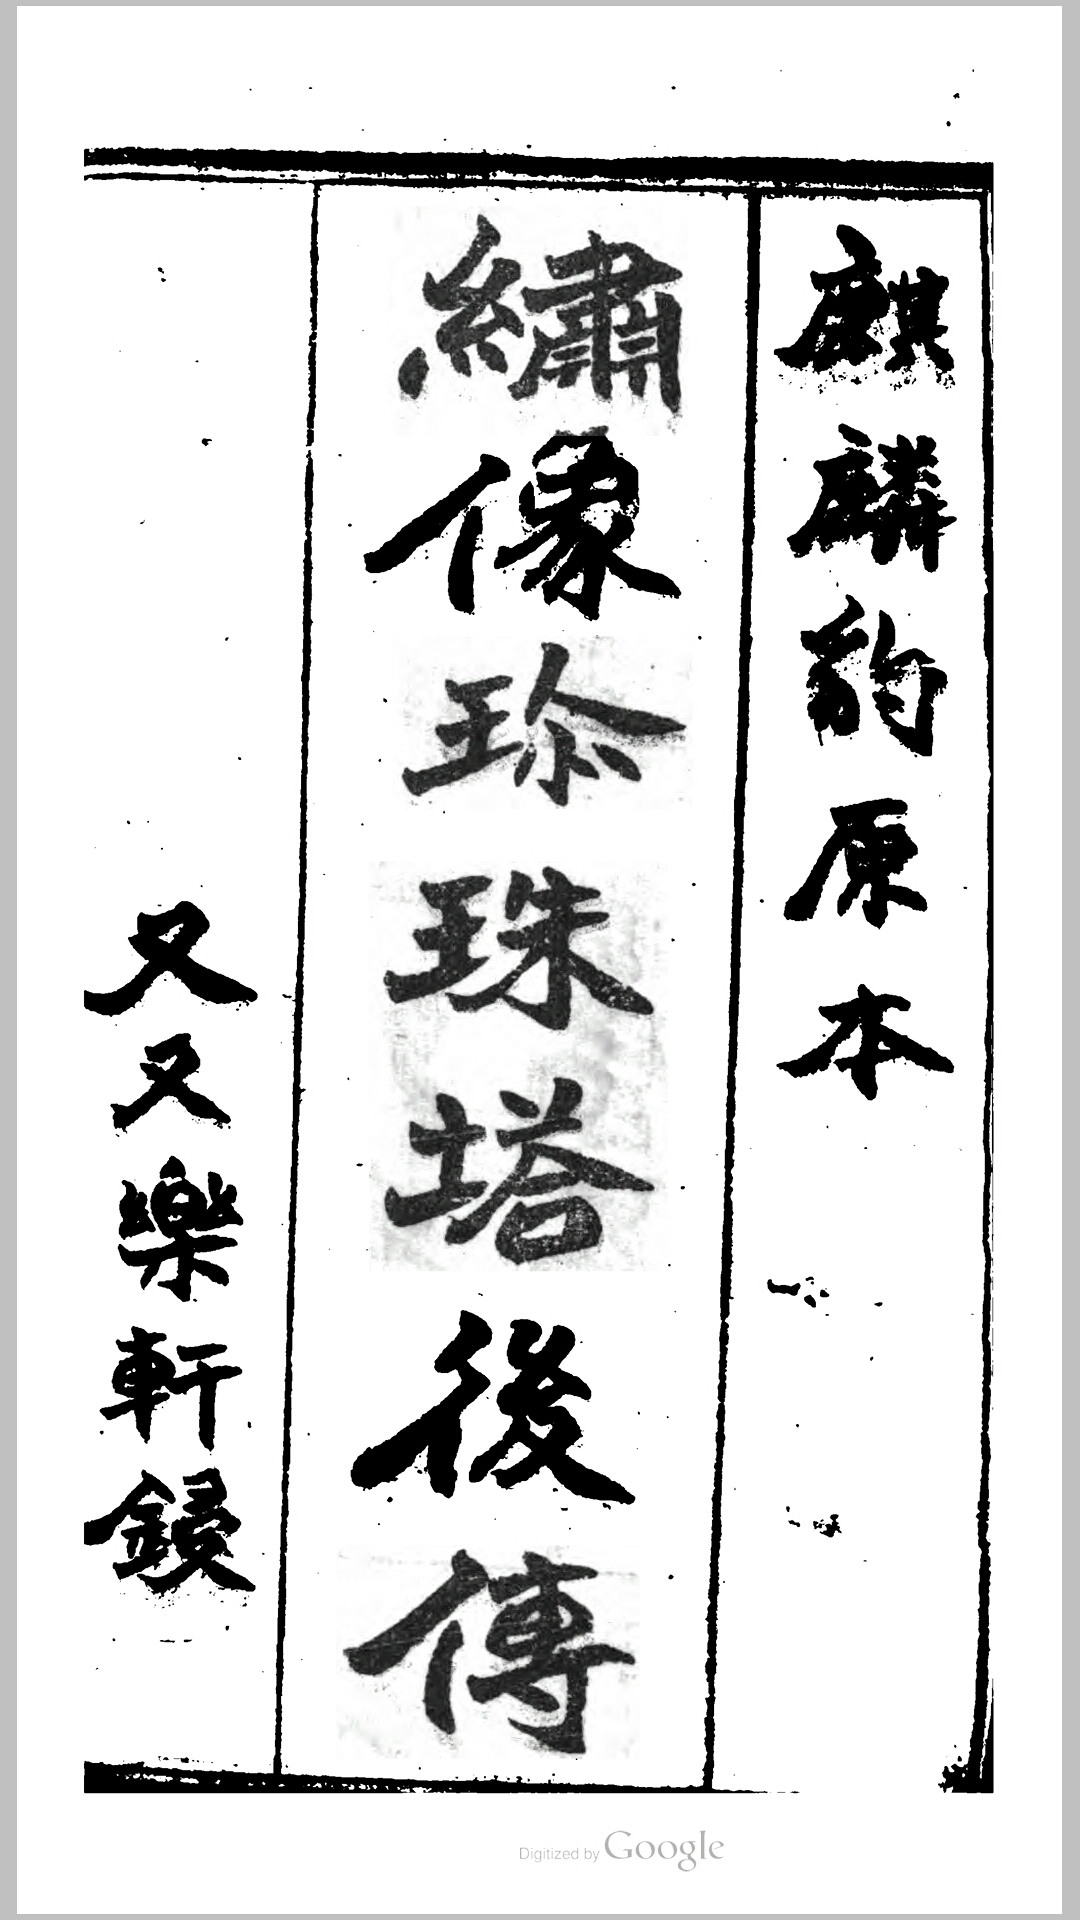 麒麟豹原本
繡像珎珠塔後傳
又又樂軒鋟
Digitized by Google